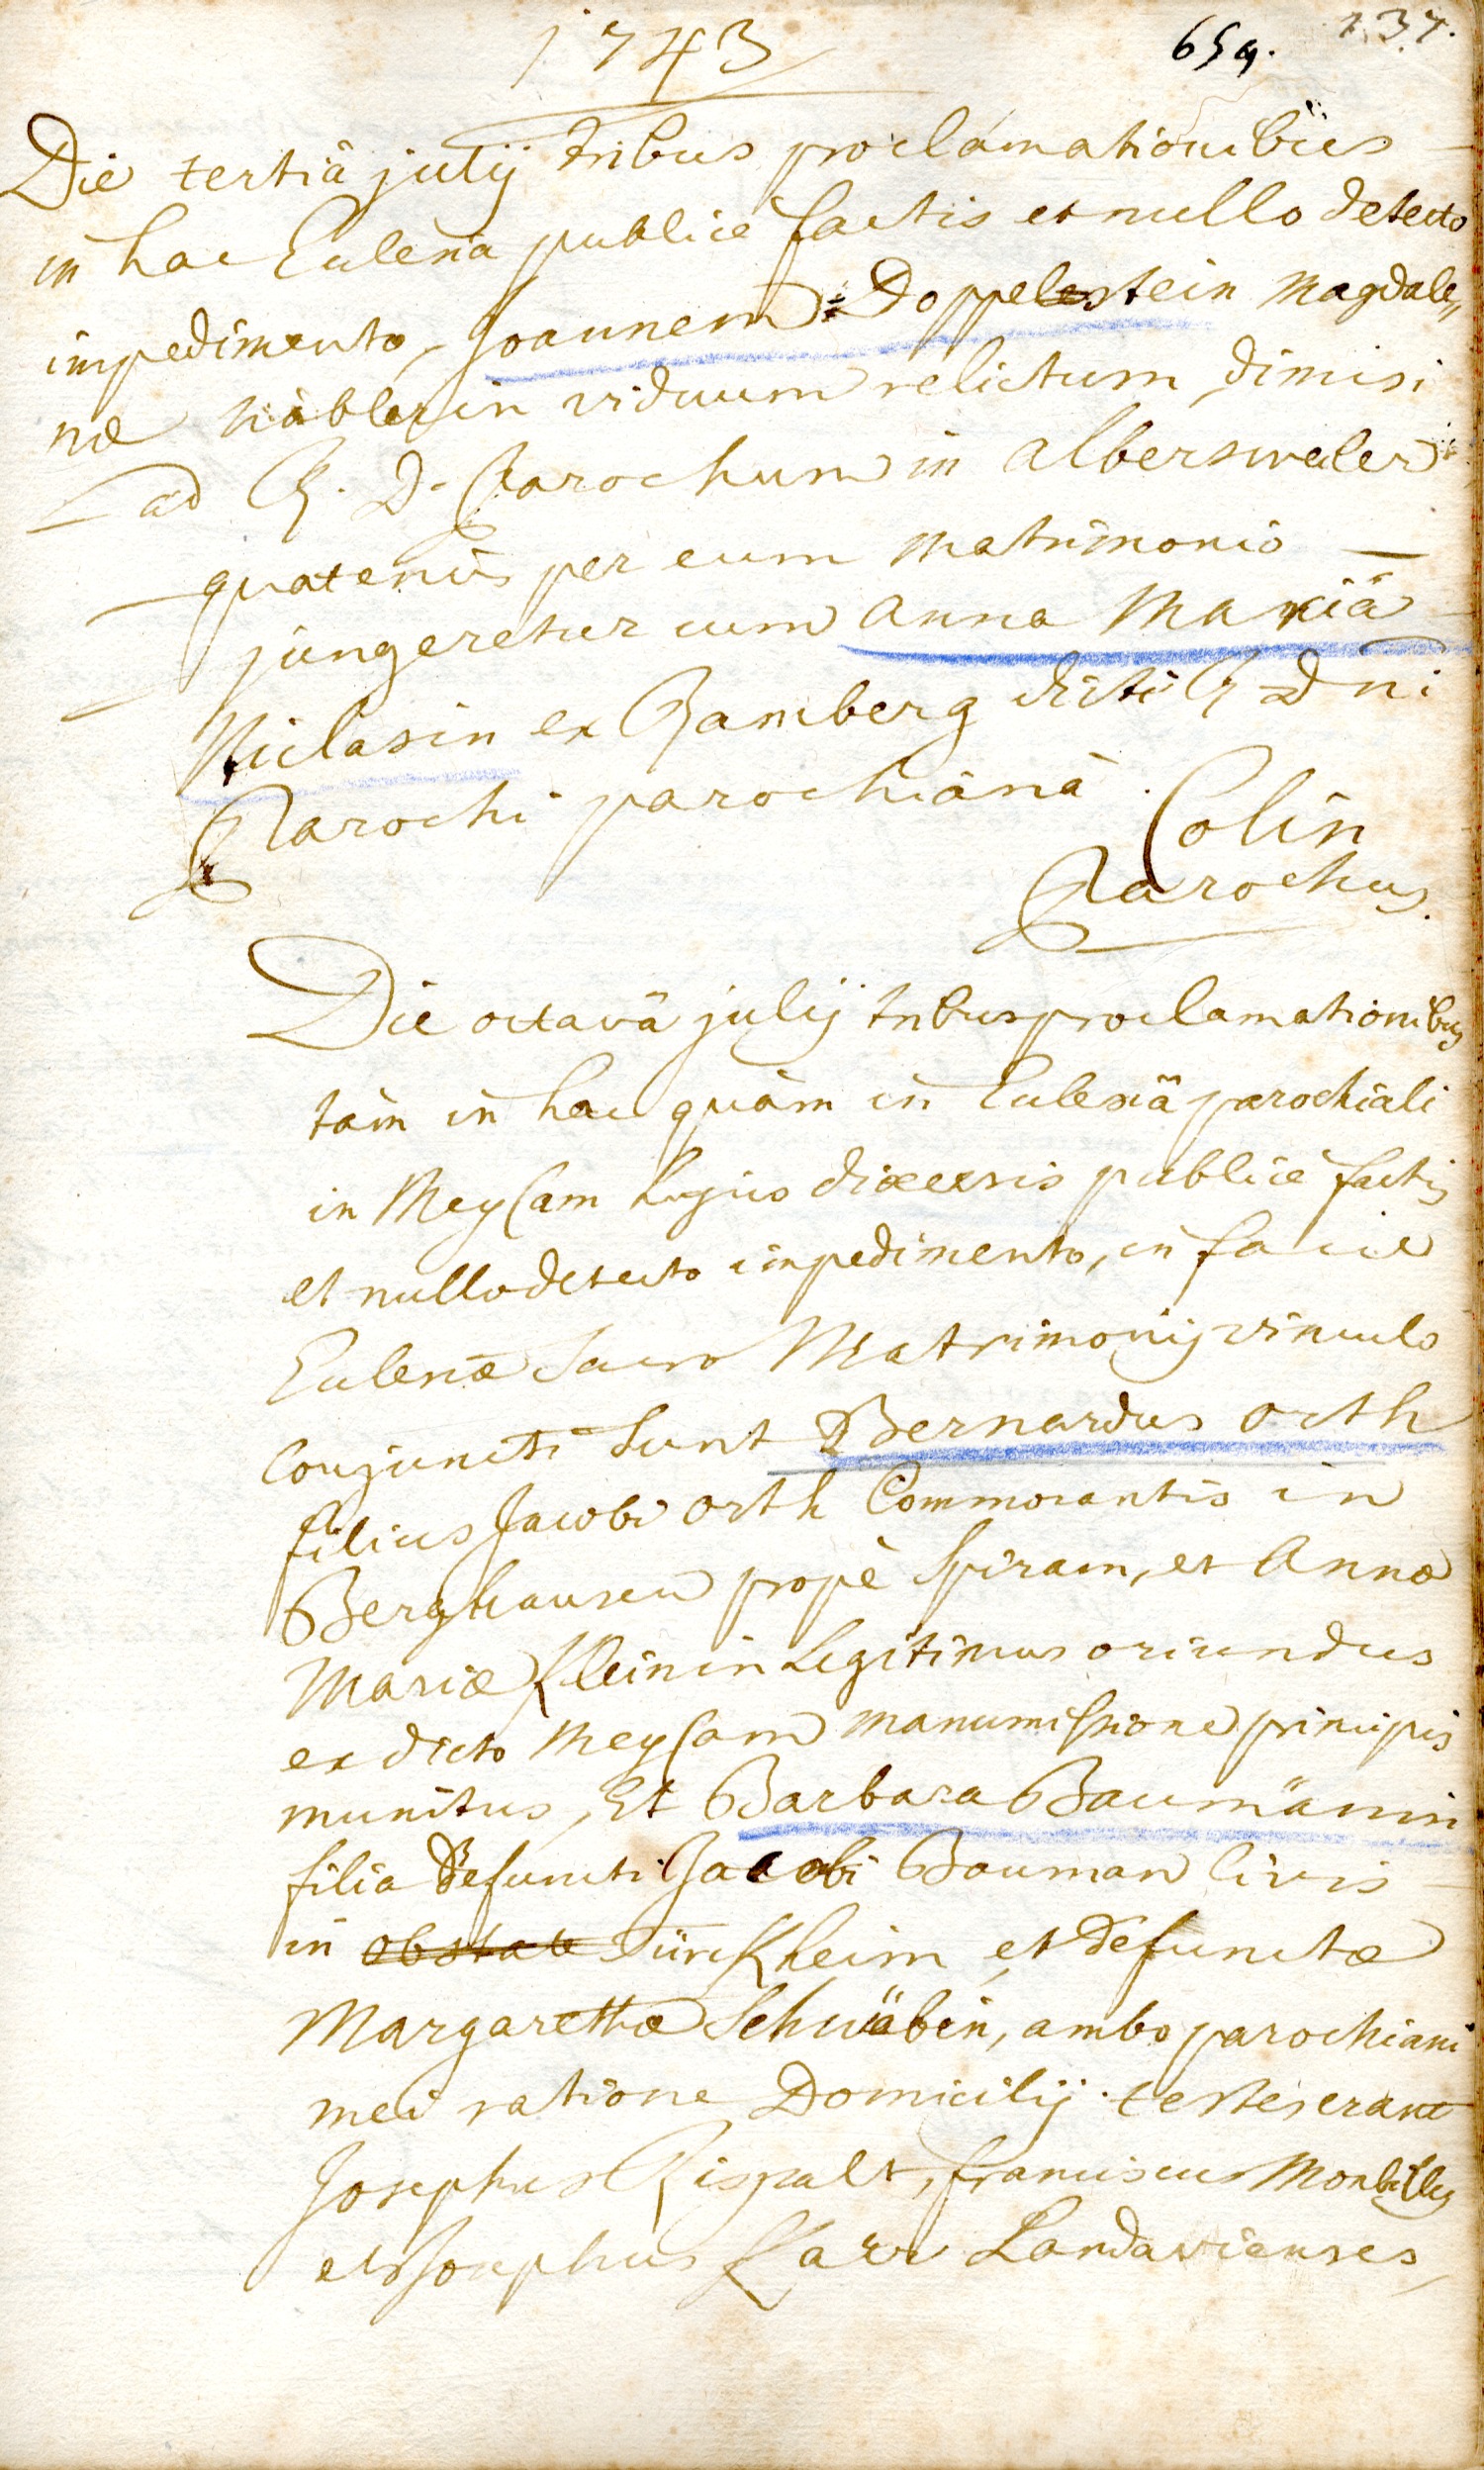 1743
659. 237.
Die tertiâ julij tribus proclamationibus
in hac Ecclesiâ publicè factis et nullo detecto
impedimento, Joannem Doppelestein Magdale„
næ Näblerin viduum relictum, dimisi
ad R. D. Parochum in Albersweiler
quatenùs per eum matrimonio
jungeretur cum Anna Mariâ
Niclasin ex Bamberg dicti R Dni
Parochi parochianâ.
Colin
Parochus.
Die octavâ julij tribus proclamationibus
tàm in hac quàm in Ecclesiâ parochiali
in Meycam hujus diœcesis publicè factis
et nullo detecto impedimento, in facie
Ecclesiæ Sacro Matrimonij vinculo
Conjuncti Sunt Bernardus Orth
filius Jacobi Orth Commorantis in
Berghausen propè Spiram, et Annæ
Mariæ Kleinin Legitimus oriundus
ex dicto Meycam manumissione principis
munitus, Et Barbara Baumännin
filia defuncti Jacobi Bauman Civis
in obstate Dürckheim et defunctæ
Margarethæ Schwäbin, ambo parochiani
mei ratione Domicilij. testes erant
Josephus Rispalt, franciscus
et Josephus Karr Landavienses,